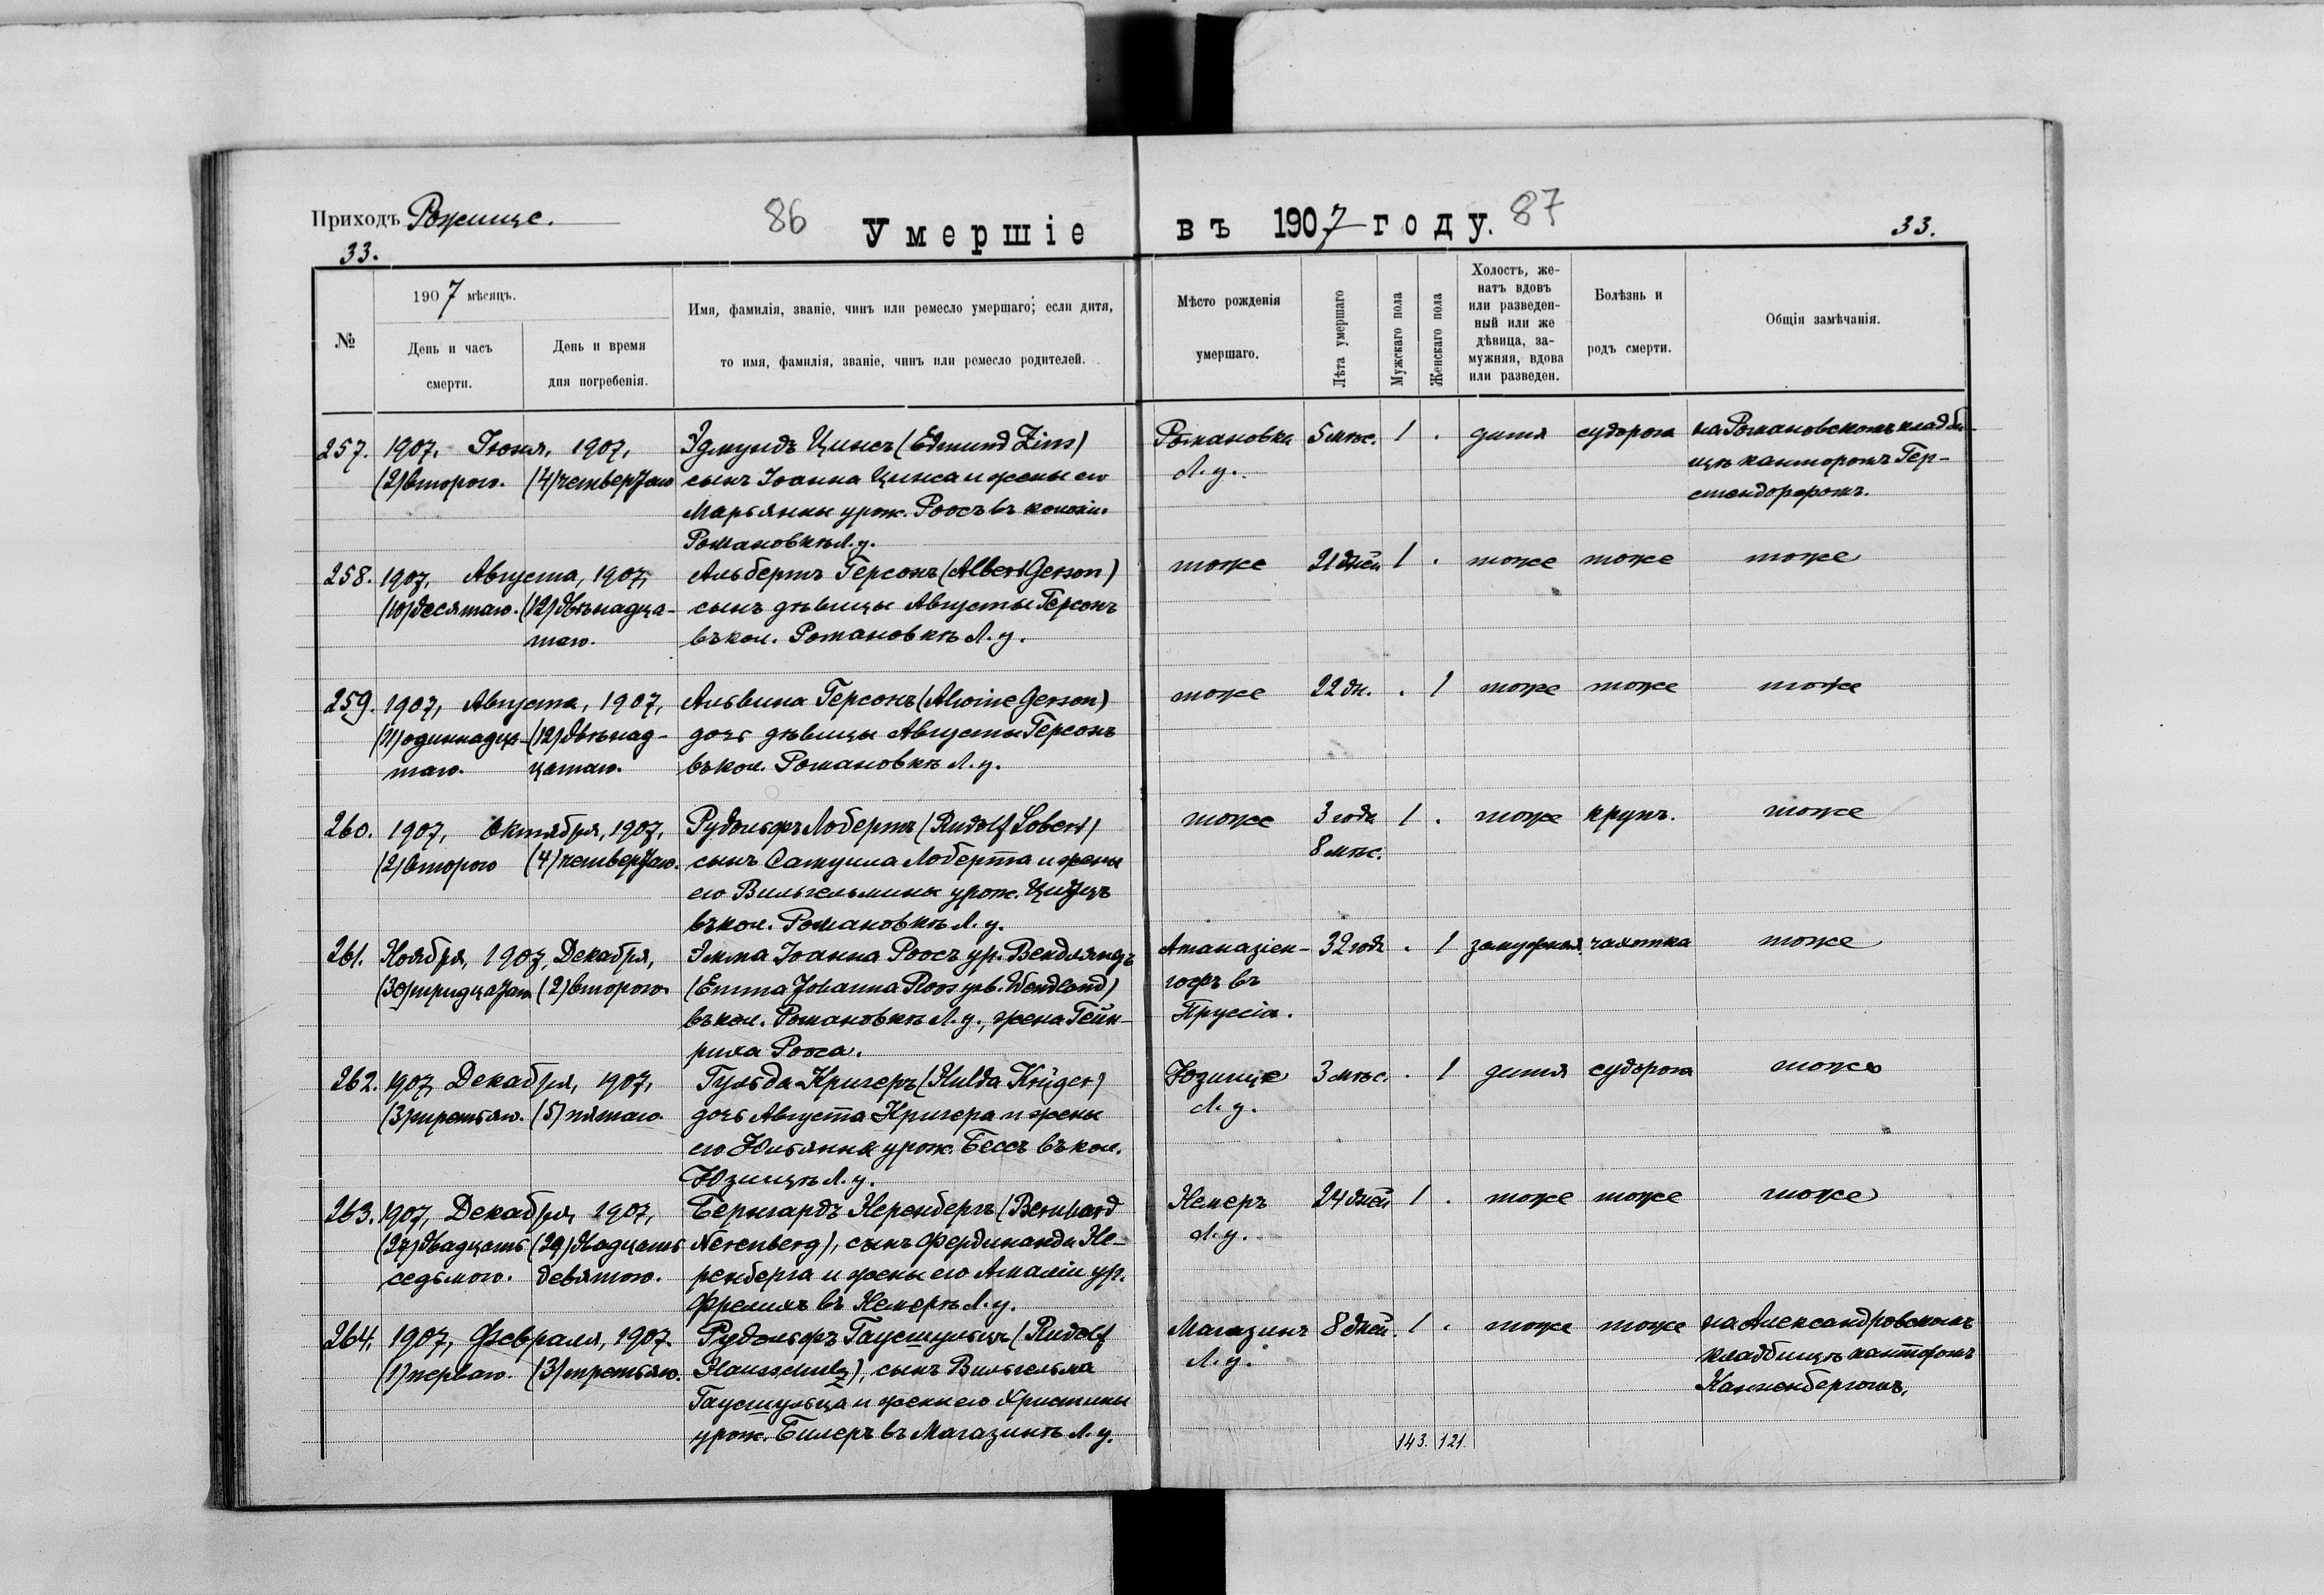 Приходъ Рожище. 86 Умершіе въ 1907 году. 87
33. 33.
№
1907 мѣсяцъ.
День и часъ смерти.
День и время дня погребенія.
Имя, фамилія, званіе, чинъ или ремесло умершаго; если дитя,
то имя, фамилія, званіе, чинъ или ремесло родителей.
Мѣсто рожденія
умершаго.
Лѣта умершаго
Мужскаго пола
Женскаго пола
Холостъ, же-
натъ вдовъ
или разведен-
ный или же
дѣвица, за-
мужняя, вдова
или разведен.
Болѣзнь и
родъ смерти.
Общія замѣчанія.
257. 1907, Іюня, 1907, Эдмундъ Цинсъ (Edmund Zins) Романовка 5 мѣс. 1 . дитя судорога на Романовскомъ кладби-
(2) второго. (4) четвертаго сынъ Іоанна Цинса и жены его Л. у. щѣ канторомъ Гер-
Марьянны урож. Роосъ въ колоніи стендорфомъ.
Романовкѣ Л. у.
258. 1907, Августа, 1907, Альбертъ Герсонъ (Albert Gerson) тоже 21 дней 1 . тоже тоже тоже
(10) десятаго. (12) двѣнадца- сынъ дѣвицы Августы Герсонъ
таго. въ кол. Романовкѣ Л. у.
259. 1907, Августа, 1907, Альвина Герсонъ (Alwine Gerson) тоже 22 дн. . 1 тоже тоже тоже
(11) одиннадца- (12) двѣнад- дочь дѣвицы Августы Герсонъ
таго. цатаго. въ кол. Романовкѣ Л. у.
260. 1907, Октября, 1907, Рудольфъ Лобертъ (Rudolf Lobert) тоже 3 года 1 . тоже крупъ. тоже
(2) второго (4) четвертаго. сынъ Самуила Лоберта и жены 8 мѣс.
его Вильгельмины урож.
въ кол. Романовкѣ Л. у.
261. Ноября, 1907, Декабря, Эмма Іоанна Роосъ ур. Вендляндъ Атаназіен- 32 года . 1 замужняя чахотка тоже
(30) тридцатаго (2) второго. (Emma Johanna Roos geb. Wendland) гофъ въ
въ кол. Романовкѣ Л. у., жена Гейн- Пруссіи.
риха Рооса.
262. 1907, Декабря, 1907, Гульда Кригеръ (Hulda Krüger) Юзищце 3 мѣс. . 1 дитя судорога тоже
(3) третьяго. (5) пятаго. дочь Августа Кригера и жены Л. у.
его Юльянны урож. Бессъ въ кол.
Л. у.
263. 1907, Декабря, 1907, Бернгардъ Неренбергъ (Bernhard Немеръ 24 дней 1 . тоже тоже тоже
(27) двадцать (29) двадцать Nerenberg), сынъ Фердинанда Не- Л. у.
седьмого. девятого. ренберга и жены его Амаліи ур.
въ Немерѣ Л. у.
264. 1907, Февраля, 1907. Рудольфъ Гаусшульцъ (Rudolf Магазинъ 8 дней. 1 . тоже тоже на Александровскомъ
(1) перваго. (3) третьяго. Hausschulz), сынъ Вильгельма Л. у. кладбищѣ канторомъ
Гаусшульца и жены его Христины Канненбергомъ.
урож. Билеръ въ Магазинѣ Л. у.
143. 121.